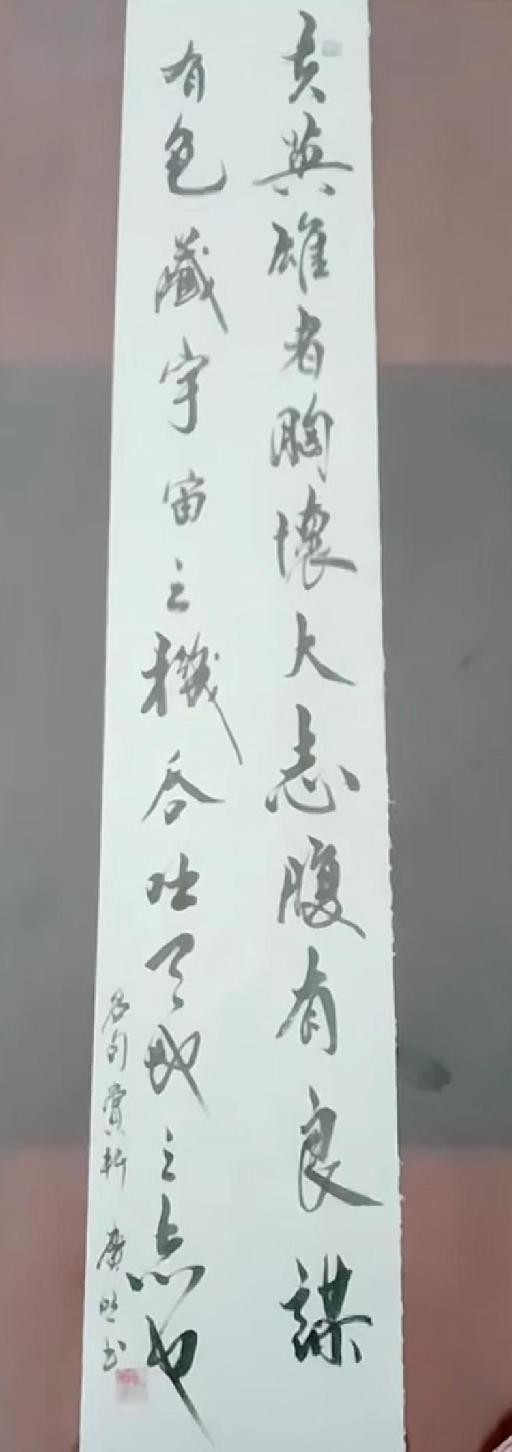 夫英雄者胸懷大志腹有良謀
有包藏宇宙之機吞吐天地之志也
名句賞析 廣明书